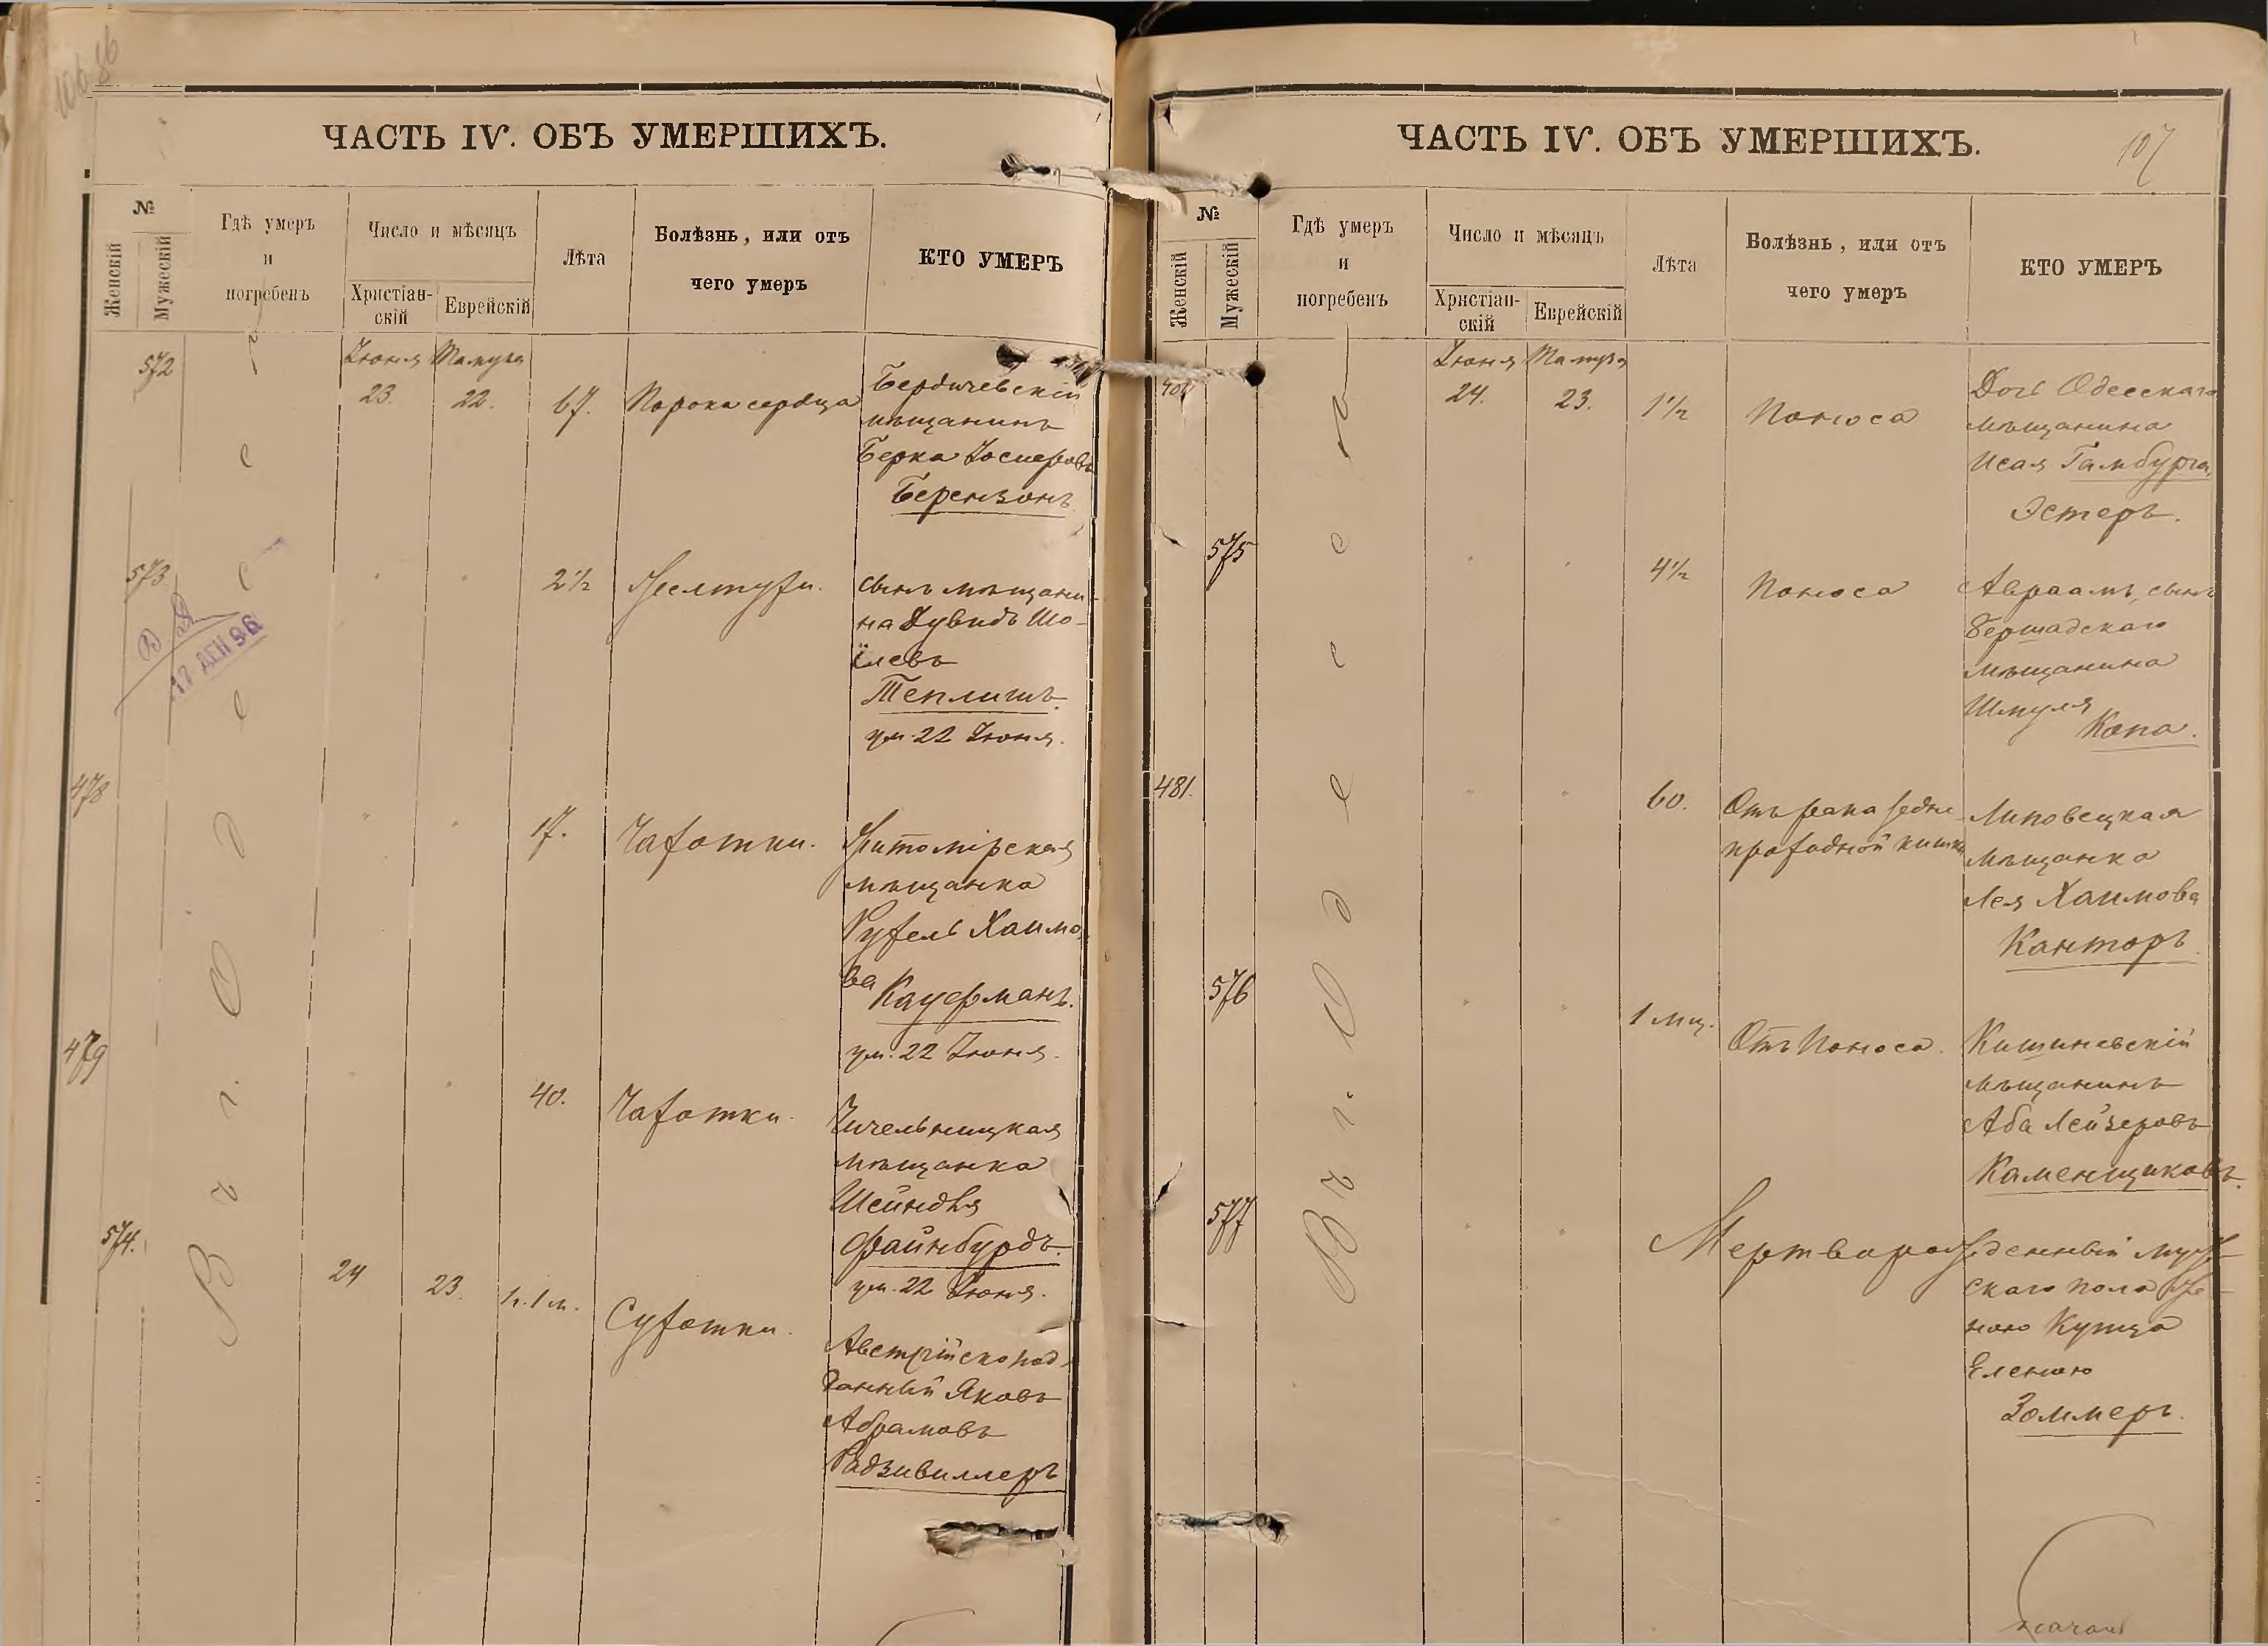 ЧАСТЬ IV. ОБЪ УМЕРШИХЪ.
№
Женскій
Мужескій
Гдѣ умеръ
и
погребенъ
Число и мѣсяцъ
Христіан-
скій
Еврейскій
Лѣта
Болѣзнь, или отъ
чего умеръ
КТО УМЕРЪ
Въ г. Одессѣ
572
Іюня Тамуза
23. 22.
67.
Порока сердца
Бердичевскій
мѣщанинъ
Берка Іосифовъ
Берензонъ
573
2½
сынъ мѣщани-
на Дувидъ Шо-
їлевъ
Теплишъ.
ум. 22 Іюня.
17 АПР 96
478
17.
Чахотки.
Житомірская
мѣщанка
Рухель Хаимо-
ва Кауфманъ.
ум. 22 Іюня.
479
40.
Чахотки.
Чичельницкая
мѣщанка
Шейндля
Файнбурдъ.
ум. 22 Іюня.
574.
24 23.
1 г. 1 м.
Сухотки.
Австрійско под-
данный Яковъ
Абрамовъ
Радзивиллеръ
ЧАСТЬ IV. ОБЪ УМЕРШИХЪ.
107
№
Женскій
Мужескій
Гдѣ умеръ
и
погребенъ
Число и мѣсяцъ
Христіан-
скій
Еврейскій
Лѣта
Болѣзнь, или отъ
чего умеръ
КТО УМЕРЪ
Въ г. Одессѣ
Іюня Тамуза
24. 23.
1½
Поноса
Дочь Одесскаго
мѣщанина
Исая Гамбурга,
Эстеръ.
575
4½
Поноса
Авраамъ, сынъ
Бершадскаго
мѣщанина
Шмуля
Копа.
481.
60.
Отъ рака задне-
проходной кишки
Липовецкая
мѣщанка
Лея Хаимова
Канторъ.
576
1 мц.
Отъ Поноса.
Кишиневскій
мѣщанинъ
Аба Лейзеровъ
Каменщиковъ.
577
Мертворожденный муж-
скаго пола же-
ною Купца
Еленою
Зоммеръ.